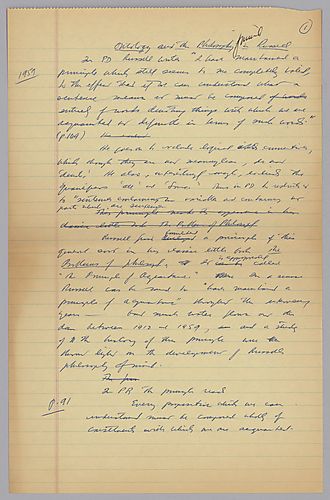 1
Ontology and the Philosophy of mind in Russell
1959 In PD Russell writes "I have maintained a
principle which still seems to me completely valid,
to the effect that if we can understand what a
sentence means, it must be composed of words
entirely of words denoting things with which we are
acquainted or definable in terms of such words."
(p 169)
He goes on to exclude logical connectives,
which though they are not meaningless, do not
'denote'. He also, interestingly enough, extends this
quantifiers 'all' and 'some'. Thus in PD he restricts it
to "sentences containing no variable and containing no
parts which are sentences
This principle made its appearance in
Problems of Philosophy
Russell first formulated a principle of this
general sort in his classic little book The
Problems of Philosophy. It is appropriately called
"The Principle of Acquaintance". in a sense
Russell can be said to "have maintained a
principle of acquaintance" throughout the intervening
years — but much water flows over the
dam between 1912 and 1959, and a study
of the history of this principle
throws light on the development of Russell's
philosophy of mind.
In PP the principle reads
p. 91 Every proposition which we can
understand must be composed wholly of
constituents with which we are acquainted.